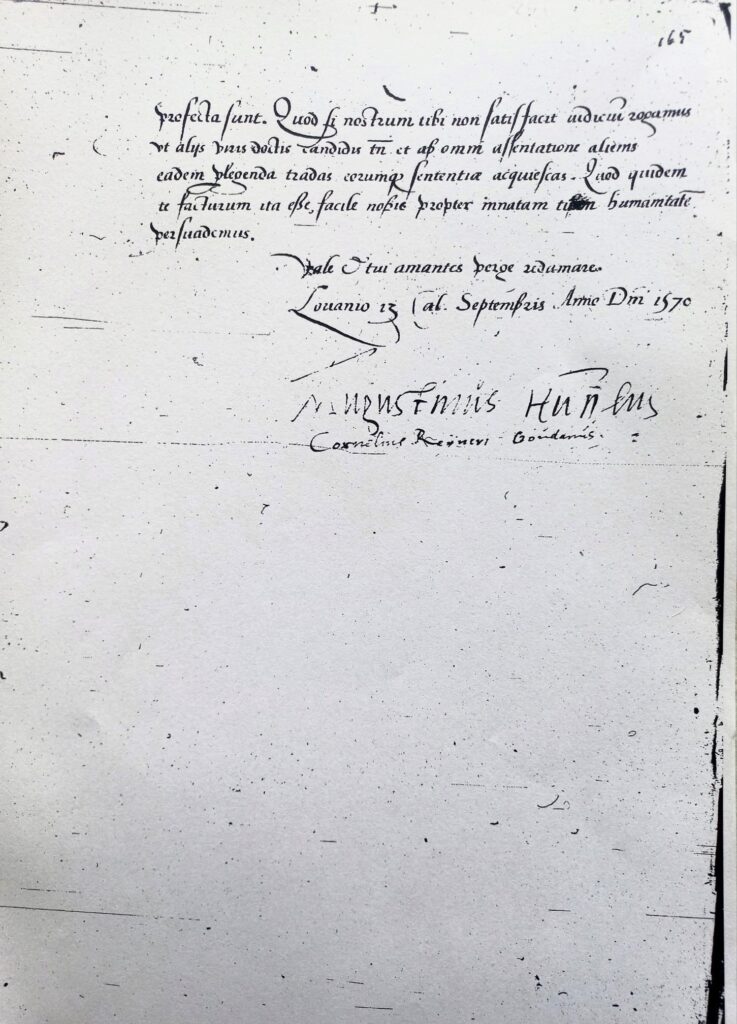 165
profecta sunt. Quod si nostrum tibi non satisfacit iudiciū rogamus
vt alijs viris doctis candidis tn̄ et ab omni assentatione alienis
eadem plegenda tradas eorumq sententiæ acquiescas. Quod quidem
te facturum ita esse, facile nobis propter innatam humanitatē
persuademus.
Vale & tui amantes perge redamare.
Lovanio 13 Cal. Septembris Anno Dni 1570
Augustinus Hunnæus
Cornelius Reyneri Goudanus.